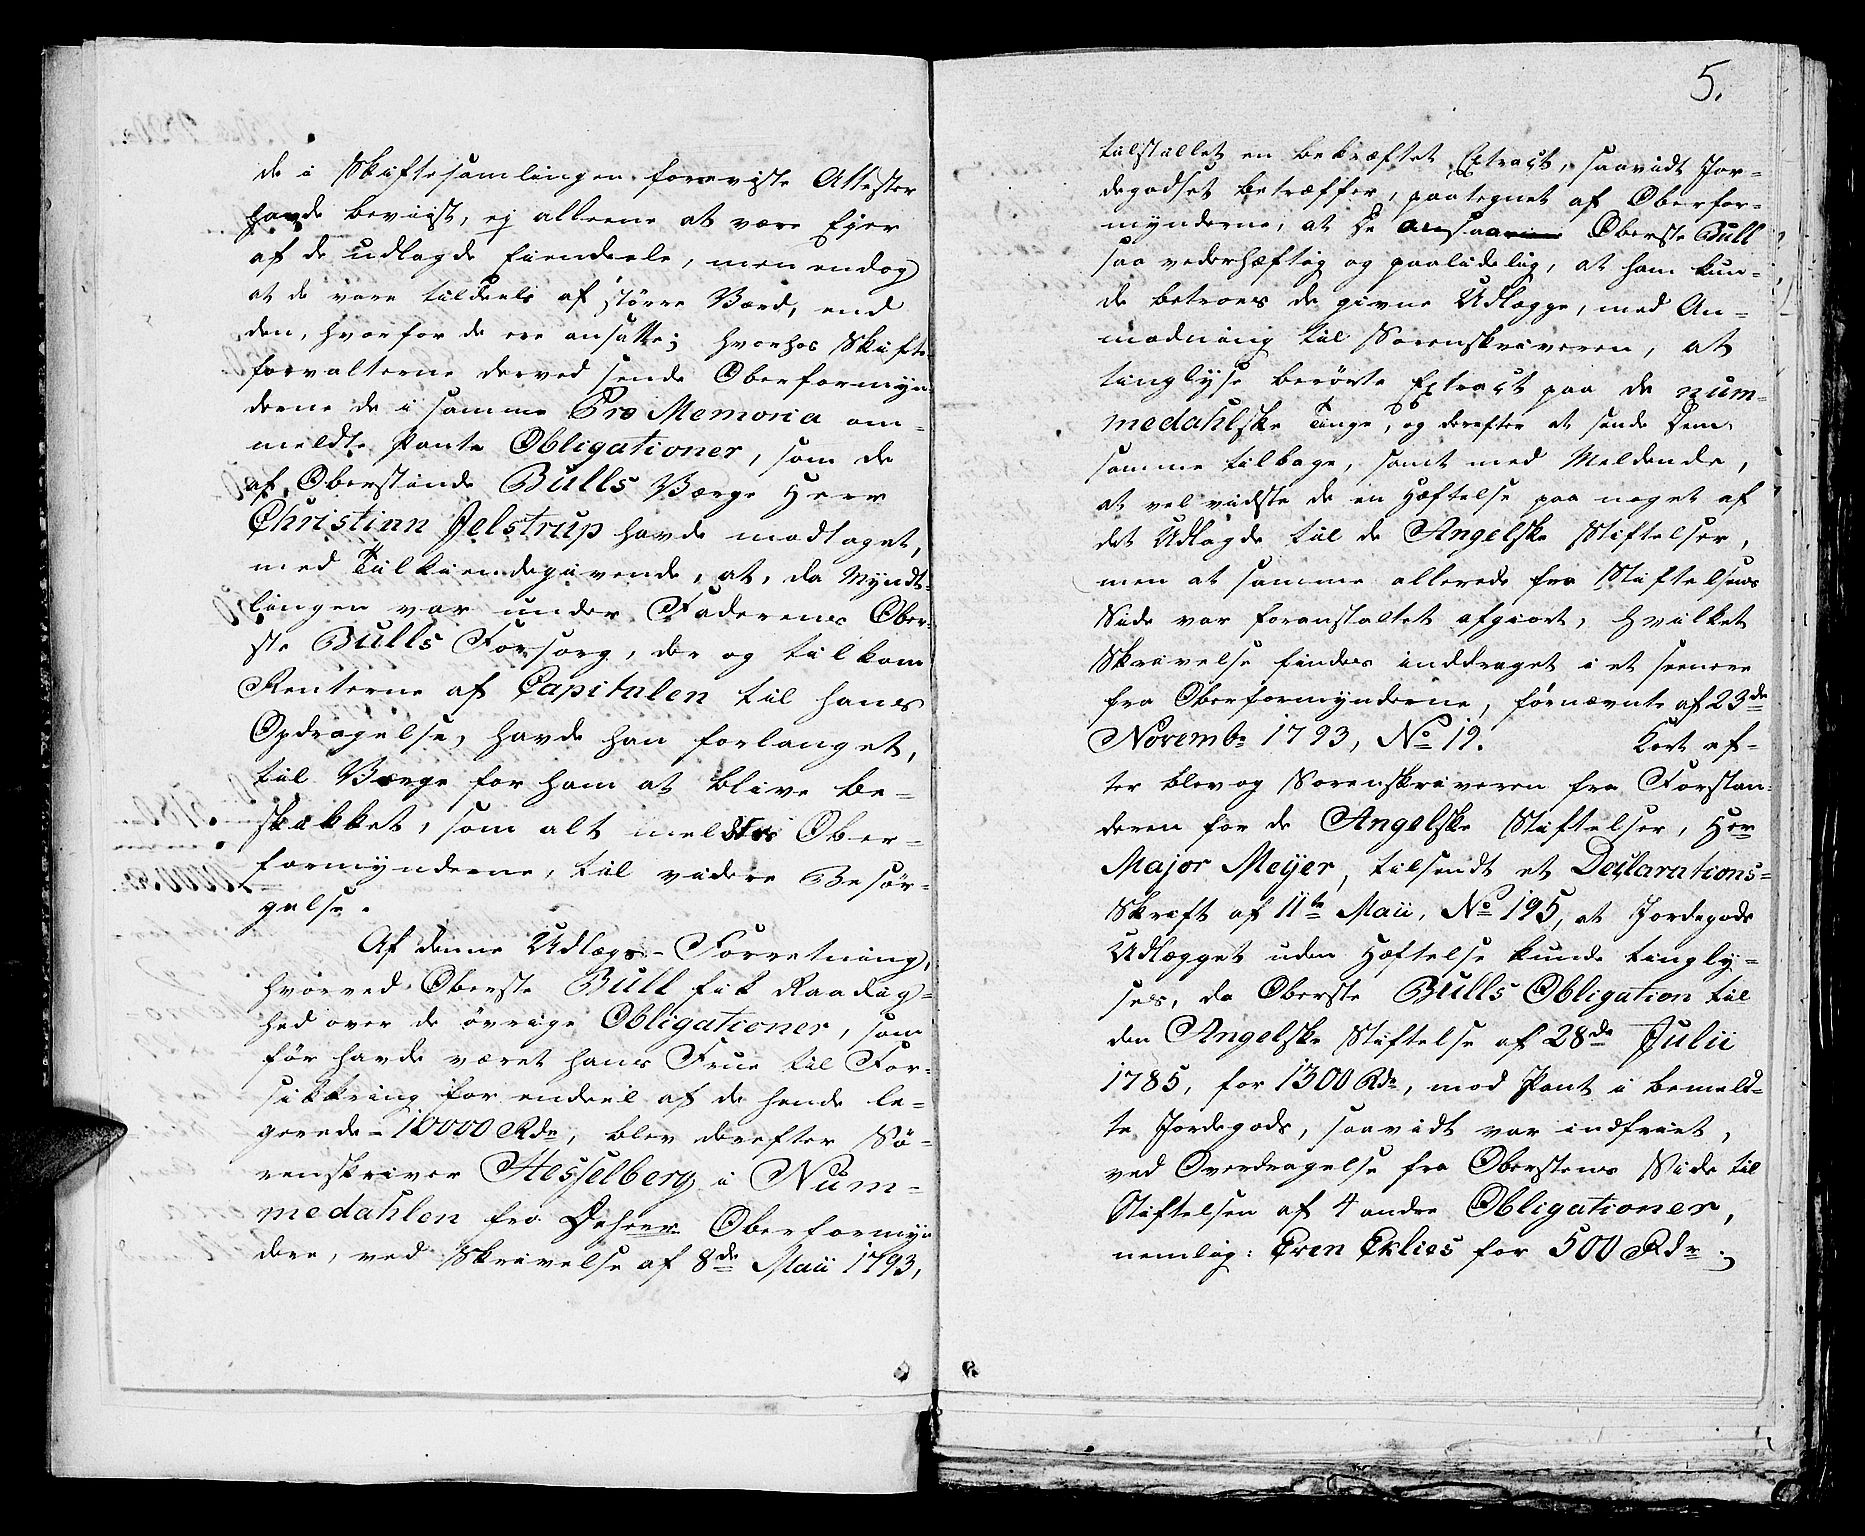 de i Skiftesamlingen foreviste Attester
havde beviist, ej alleene at være Ejer
af de udlagde Eiendeele, men endog
at de vare tildeels af større Værd, end
den, hvorfor de ere ansatte; hvorhos Skifte
forvalterne derved sende Oberformyn
derne de i samme Pro Memoria om-
meldte Pante Obligationer, som de
af Oberstinde Bulls Værge Herr
Christian Jelstrup havde modtaget,
med Tilkiendegivende, at, da Myndt-
lingen var under Faderens Ober-
ste Bulls Forsorg, der og tilkom
Renterne af Capitalen til hans
Opdragelse, havde han forlanget,
til Værge for ham at blive be-
skikket, som alt meldtes Ober-
formynderne, til videre Besør-
gelse.
Af denne Udlægs-Forretning,
hvorved Oberste Bull fik Raadig-
hed over de øvrige Obligationer, som
før havde været hans Frue til For-
sikkring for endeel af de hende le-
gerede 10000 Rdr, blev derefter So-
renskriver Hesselberg i Num-
medahlen fra Deherrer Oberformyn
dere, ved Skrivelse af 8de Maii 1793,
5.
tilstillet en bekræftet Extract, saavidt Jor-
degodset betræffer, paategnet af Oberfor-
mynderne, at de ansaae Oberste Bull
saa vederhæftig og paalidelig, at ham kun-
de betroes de givne Udlægge, med An-
modning til Sorenskriveren, at
tinglyse berørte Extract paa de num-
medahlske Tinge, og derefter at sende Dem
samme tilbage, samt med Meldende,
at vel vidste de en Hæftelse paa noget af
det Udlagde til de Angelske Stiftelser,
men at samme allerede fra Stiftelsens
Side var foranstaltet afgiort, hvilket
Skrivelse findes inddraget i et seenere
fra Oberformynderne, førnævnte af 23de
Novembr 1793, No 19. Kort ef-
ter blev og Sorenskriveren fra Forstan-
deren for de Angelske Stiftelser, Herr
Major Meyer, tilsendt et Declarations-
Skrift af 11te Maii, No 195, at Jordegods
Udlægget uden Hæftelse kunde tingly-
ses, da Oberste Bulls Obligation til
den Angelske Stiftelse af 28de Julii
1785, for 1300 Rdr, mod Pant i bemeld-
te Jordegods, saavidt var indfriet,
ved Overdragelse fra Oberstens Side til
Stiftelsen af 4 andre Obligationer,
nemlig: Even Eklies for 500 Rdr.